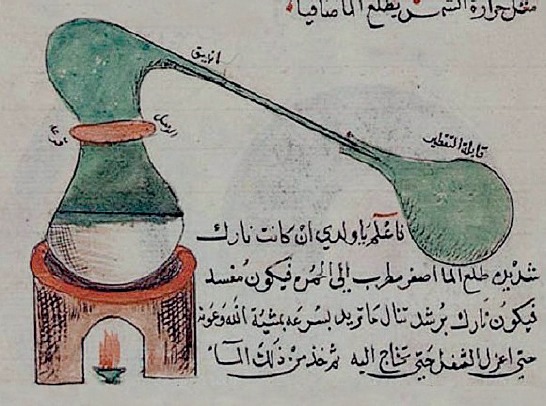 مثل حرارة الشمس يطلع الما صافيا
انبيق
قابلة التقطير
فاعلم يا ولدي ان كانت نارك
شديده طلع الما اصفر مطرب الى الحمره فيكون مفسد
فيكون نارك برشد تنال ما تريد بسرعه بمشية الله وعونه
حتى اعزل الثفل حتى تحتاج اليه ثم خذ من ذلك الماء